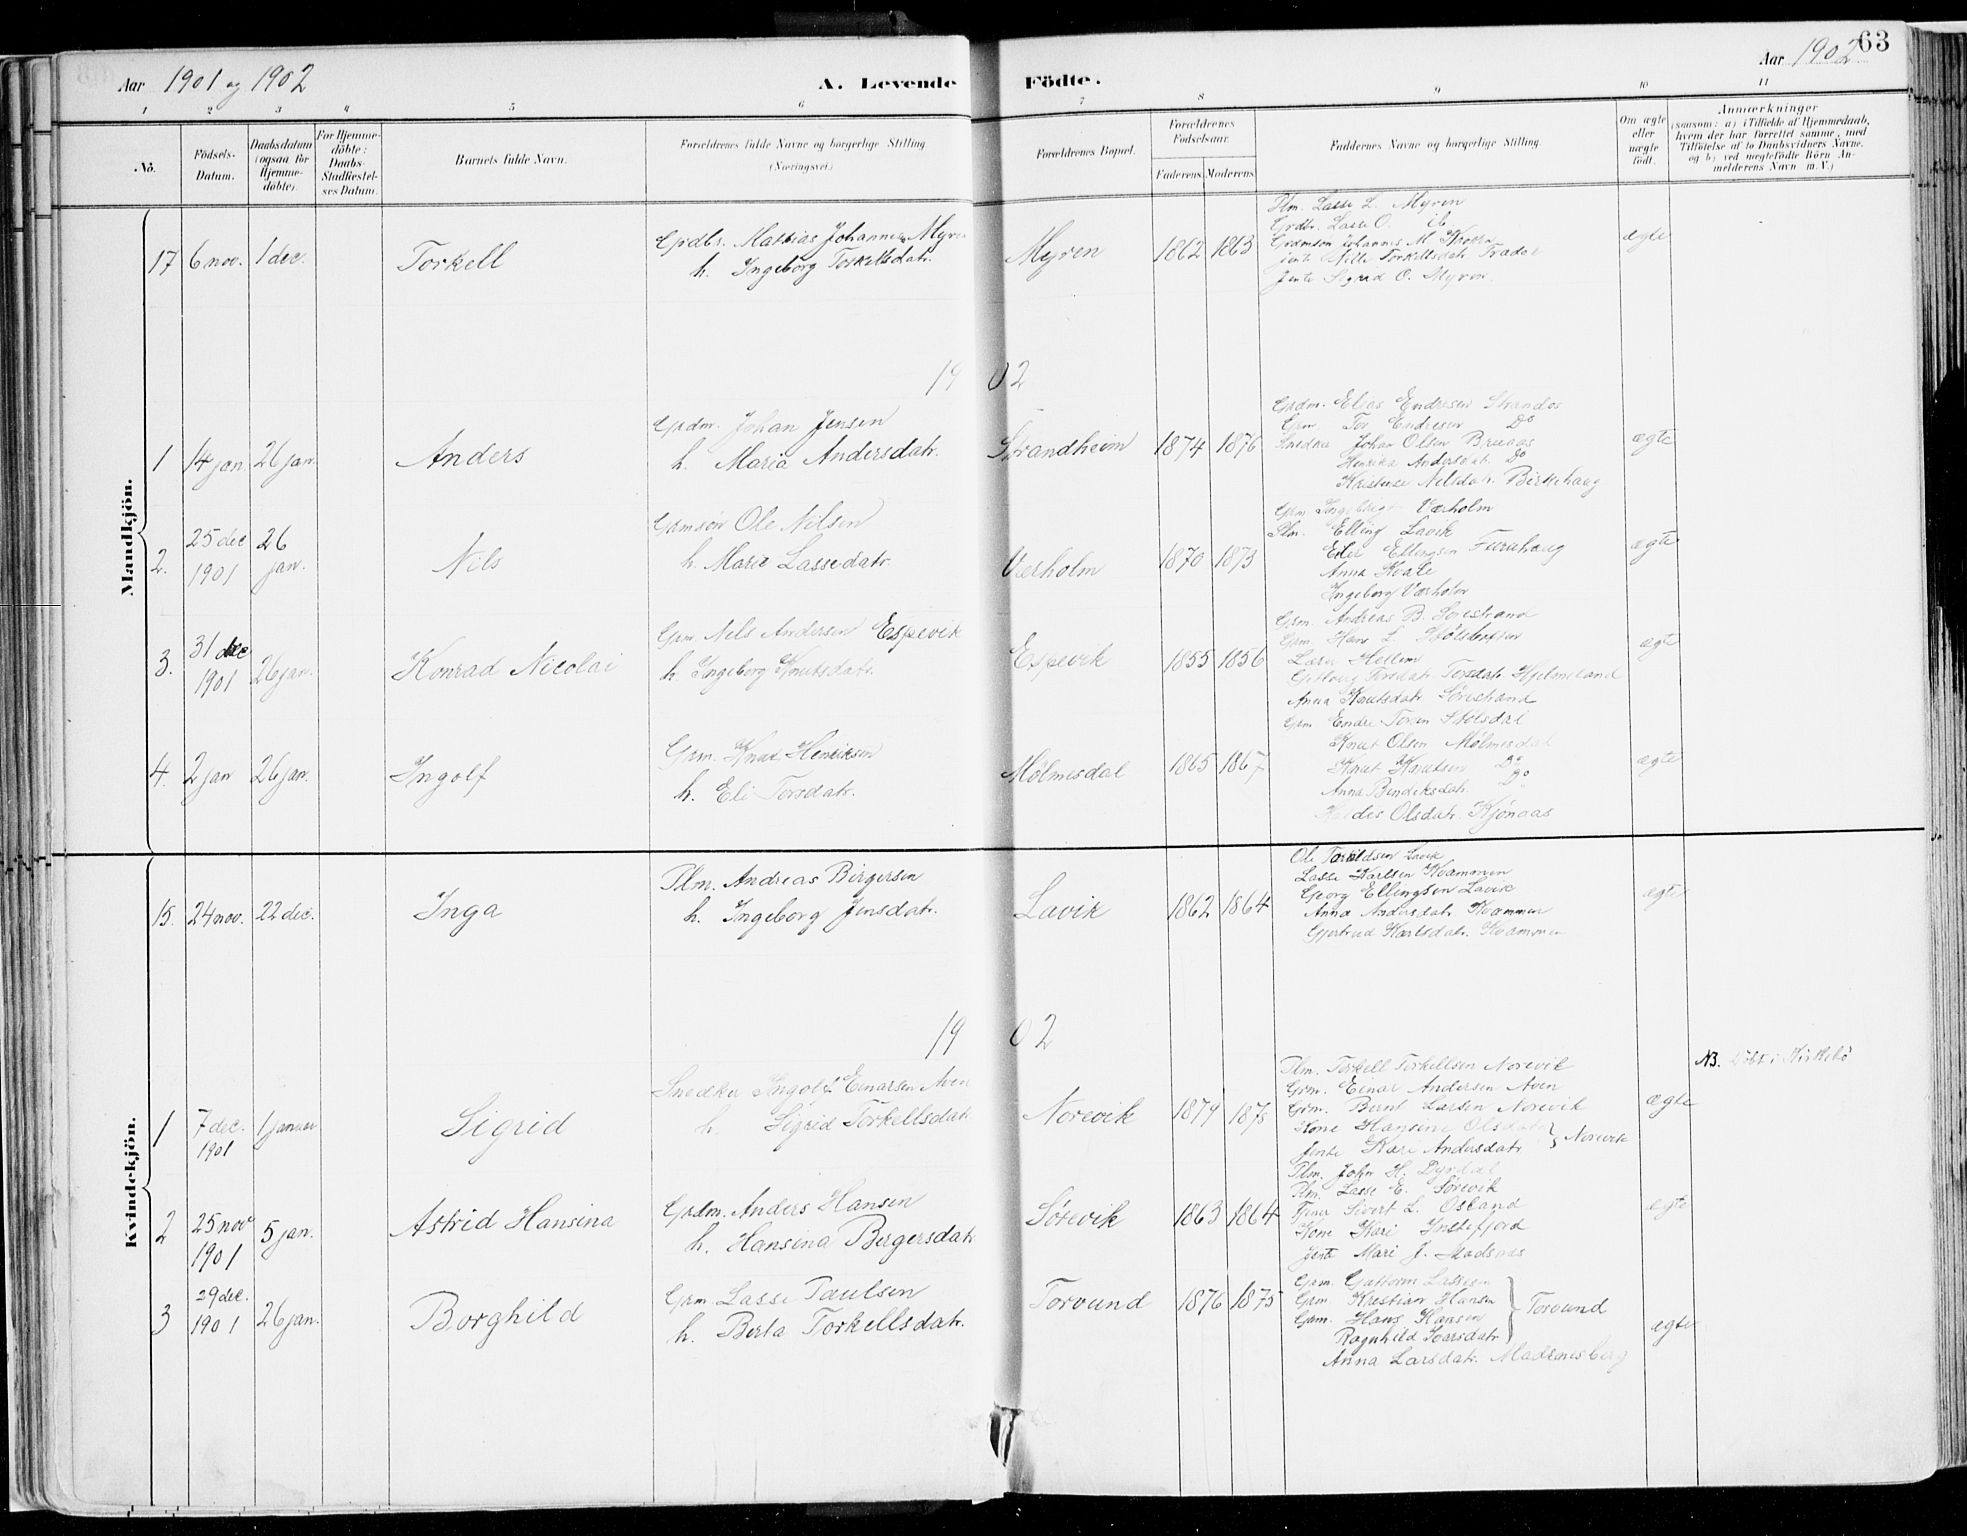 Aar 1901 og 1902
A. Levende Födte.
Aar 1902
63
1 2 3 4 5 6 7 8 9 10 11
No.
Födsels-Datum.
Daabsdatum (ogsaa for Hjemmedöbte).
For Hjemmedöbte: Daabs-Stadfæstelses Datum.
Barnets fulde Navn.
Forældrenes fulde Navne og borgerlige Stilling (Næringsvei.)
Forældrenes Bopæl.
Forældrenes Födselsaar.
Faderens Moderens
Faddernes Navne og borgerlige Stilling.
Om ægte eller uægte födt.
Anmærkninger
(saasom: a) i Tilfælde af Hjemmedaab, hvem der har forrettet samme, med Tilföielse af to Daabsvidners Navne, og b) ved uægtefödte Börn Anmelderens Navn m. V.)
Mandkjön.
17 6 nov. 1 dec. Torkell
Grdbr. Mattias Johannes Myren
h. Ingeborg Torkellsdatr.
Myren 1862 1863
Plm. Lasse L. Myren
Grdbr. Lasse O. ib
Grdmson Johannes M.
jente Torkellsdatr
Jente Sigrid O. Myren.
ægte
1902
1 14 jan. 26 jan. Anders
Grdm. Johan Jensen
h. Maria Andersdatr.
Strandheim 1874 1876
Grdm. Elias Endresen
Grm Tor Endresen Do
Snedker Johan Olsen
Henrika Andersdatr. Do
Nelsdatr. Birkehaug
ægte
2. 25 dec 1901 26 jan. Nils
Grmsøn Ole Nilsen
h. Marie Lassedatr.
Værholm 1870 1873
Grm Ingebrigt Værholm
Plm. Elling Lavik
Ellingsen Furuhaug
Anna
Ingeborg Værholm
ægte
3. 31 dec 1901 26 jan. Konrad Nicolai
Grm. Nels Andersen Espevik
h. Ingeborg Knutsdatr.
Espevik 1855 1856
Grm. Andreas B. Sørestrand
Grm. Hans L.
Hellem
Torsdatr. Hjelmeland
Anna Knutsdatr Sørestrand
ægte
4. 2 jan 26 jan. Ingolf
Grm. Knut Henriksen
h. Eli Torsdatr.
Mølmesdal 1865 1867
Grm Endre Torsen Stølsdal
Knut Olsen Mølmesdal
Knut Knutsen Do
Anna Bendiksdatr. Do
Olsdatr. Kjønaas
ægte
Kvindekjön.
15. 24 nov. 22 dec. Inga
Plm. Andreas Birgersen
h. Ingeborg Jensdatr.
Lavik 1862 1864
Ole Lavik
Lasse Karlsen Kvammen
Georg Ellingsen Lavik
Anna Andersdatr. Kvammen
Gjertrud Karlsdatr. Kvammen
ægte
1902
1 7 dec. 1901 1 januar Sigrid
Snedker Ingolf Einarsen Aven
h. Sigrid Torkellsdatr
Norevik 1879 1875
Plm. Torkell Torkellsen Norevik
Grm. Einar Andersen Aven
Grm. Bernt Larsen Norevik
Kone Hansine Olsdatr
Jente Kari Andersdatr } Norevik
ægte
NB. Døbt i Kirkebø
2 25 nov 1901 5 jan. Astrid Hansina
Grdm. Anders Hansen
h. Hansina Bergersdatr
Sørevik 1863 1864
Plm. John H. Dyrdal
Plm. Lasse E. Sørevik
Sivert L. Osland
Kone Kari Instefjord
Jente Mari J. Madsnæs
ægte
3 29 dec. 1901 26 jan. Borghild
Grm. Lasse Paulsen
h. Berta Torkellsdatr.
Torvund 1876 1875
Grm. Guttorm Lassesen
Grm. Kristian Hansen
Grm. Hans Hansen
Ragnhild Ivarsdatr } Torvund
Anna Larsdatr.
ægte